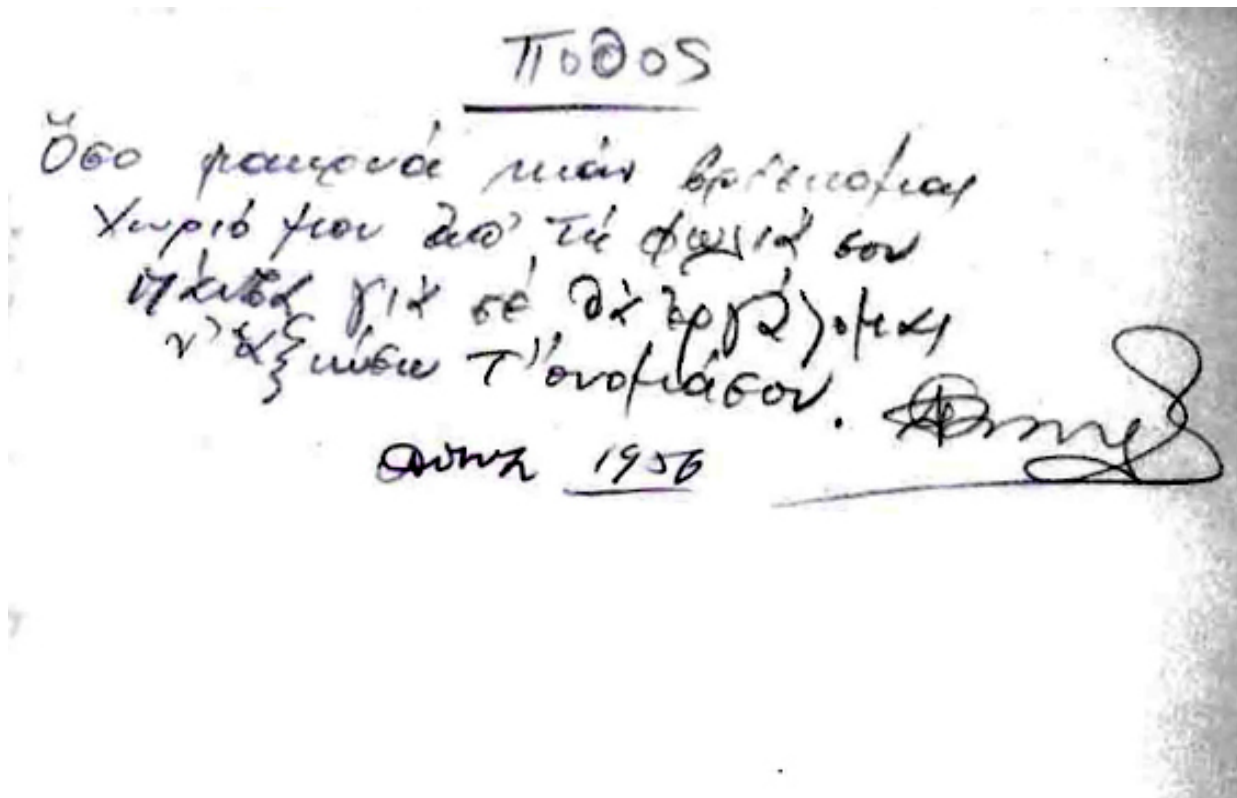 ΠΟΘΟΣ
Ὅσο μακρυά κιάν βρίσκομαι
Χωριό μου ἀπ' τή φωλιά σου
Πάντα γιά σέ θά ἐργάζομαι
ν' ἀξιώσω τ' ὄνομά σου.
1956